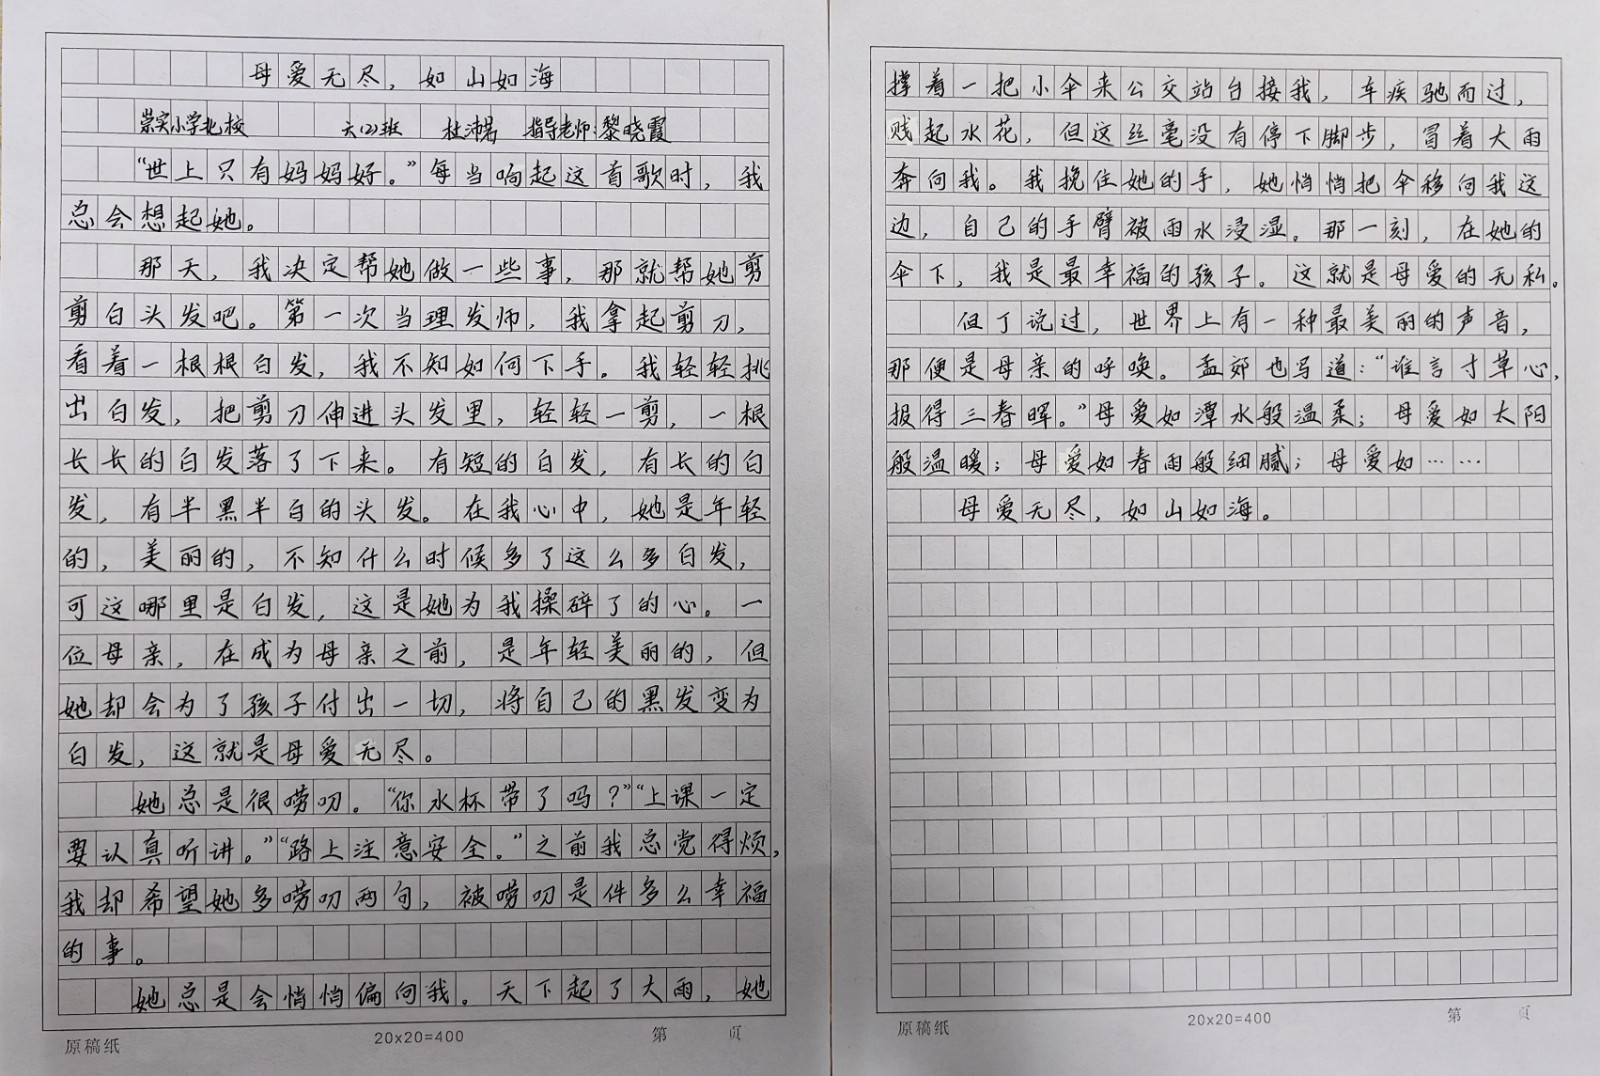 母爱无尽，如山如海
崇实小学北校 六(2)班 杜沛茗 指导老师:黎晓霞
“世上只有妈妈好。”每当响起这首歌时，我
总会想起她。
那天，我决定帮她做一些事，那就帮她剪
剪白头发吧。第一次当理发师，我拿起剪刀，
看着一根根白发，我不知如何下手。我轻轻挑
出白发，把剪刀伸进头发里，轻轻一剪，一根
长长的白发落了下来。有短的白发，有长的白
发，有半黑半白的头发。在我心中，她是年轻
的，美丽的，不知什么时候多了这么多白发，
可这哪里是白发，这是她为我操碎了的心。一
位母亲，在成为母亲之前，是年轻美丽的，但
她却会为了孩子付出一切，将自己的黑发变为
白发，这就是母爱无尽。
她总是很唠叨。“你水杯带了吗？”“上课一定
要认真听讲。”“路上注意安全。”之前我总觉得烦，
我却希望她多唠叨两句，被唠叨是件多么幸福
的事。
她总是会悄悄偏向我。天下起了大雨，她
原稿纸
20x20=400
第 页
撑着一把小伞来公交站台接我，车疾驰而过，
贱起水花，但这丝毫没有停下脚步，冒着大雨
奔向我。我挽住她的手，她悄悄把伞移向我这
边，自己的手臂被雨水浸湿。那一刻，在她的
伞下，我是最幸福的孩子。这就是母爱的无私。
但丁说过，世界上有一种最美丽的声音，
那便是母亲的呼唤。孟郊也写道：“谁言寸草心，
报得三春晖。”母爱如潭水般温柔；母爱如太阳
般温暖；母爱如春雨般细腻；母爱如……
母爱无尽，如山如海。
原稿纸
20x20=400
第 页